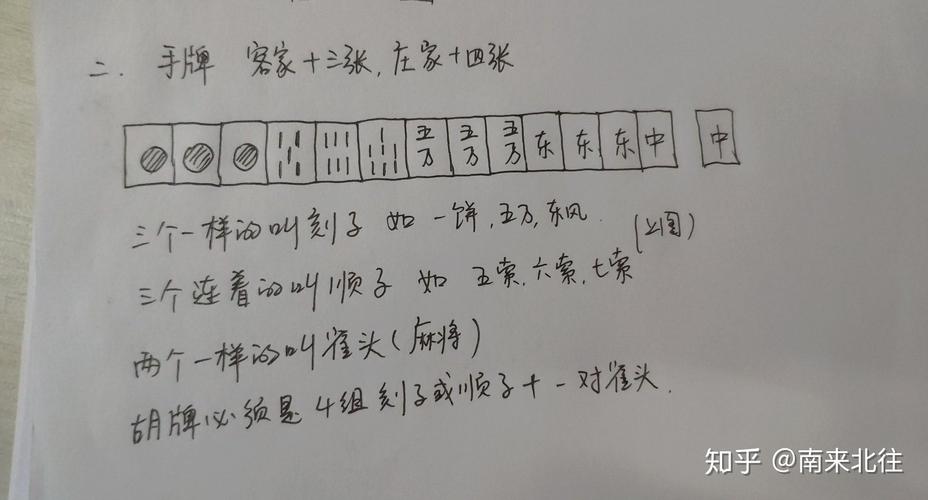 二. 手牌 客家十三张,庄家十四张
五万 五万 五万 东 东 东 中 中
三个一样的叫刻子 如 一饼,五万,东风.
(上图)
三个连着的叫顺子 如 五索,六索,七索
两个一样的叫雀头(麻将)
胡牌必须是4组刻子或顺子+一对雀头.
知乎 @南来北往